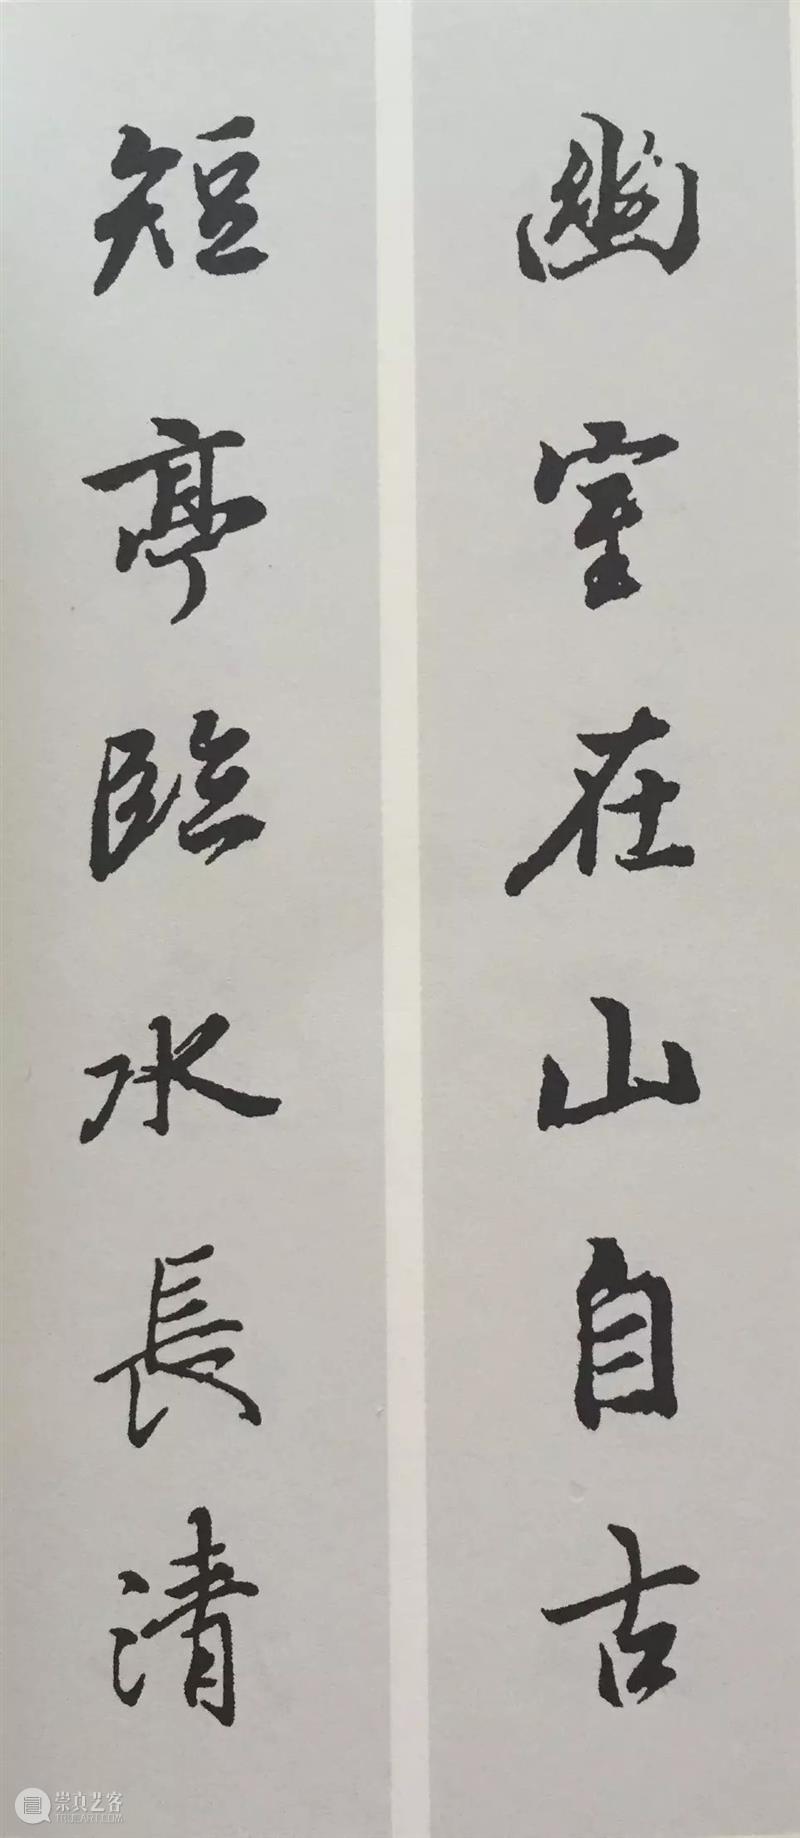 幽室在山自古
短亭臨水長清
崇真艺客
TRUEART.COM